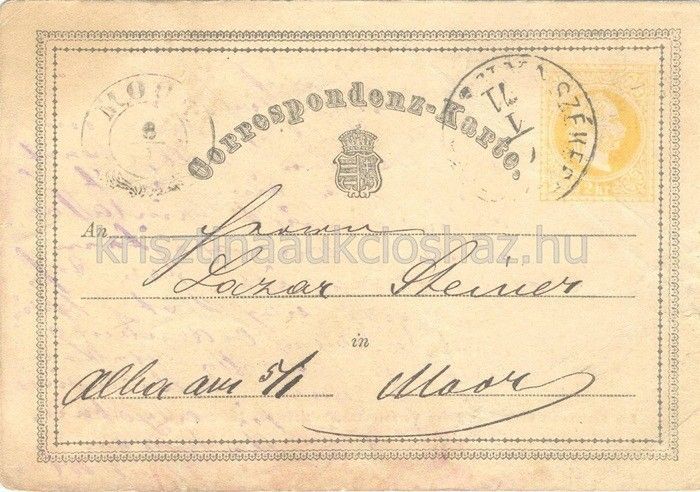 Correspondenz-Karte.
An Herrn
krisztinaaukcioshaz.hu
Lazar Steiner
in
Alba am 5/1 Moor